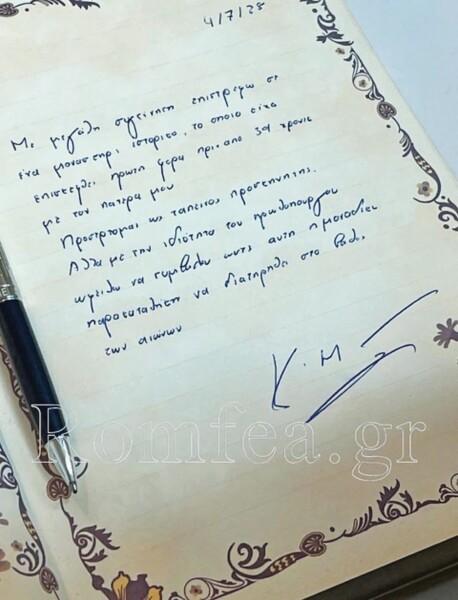 4/7/23
Με μεγάλη συγκίνηση επιστρέφω σε
ένα μοναστήρι, ιστορικό, το οποίο είχα
επισκεφθεί πρώτη φορά πριν από 30 χρόνια
με τον πατέρα μου
Προσέρχομαι ως ταπεινός προσκυνητής.
Αλλά με την ιδιότητα του πρωθυπουργού
οφείλω να συμβάλω ώστε αυτή η μοναδική
παρακαταθήκη να διατηρηθεί στο βάθος
των αιώνων
Κ. Μ
Romfea.gr